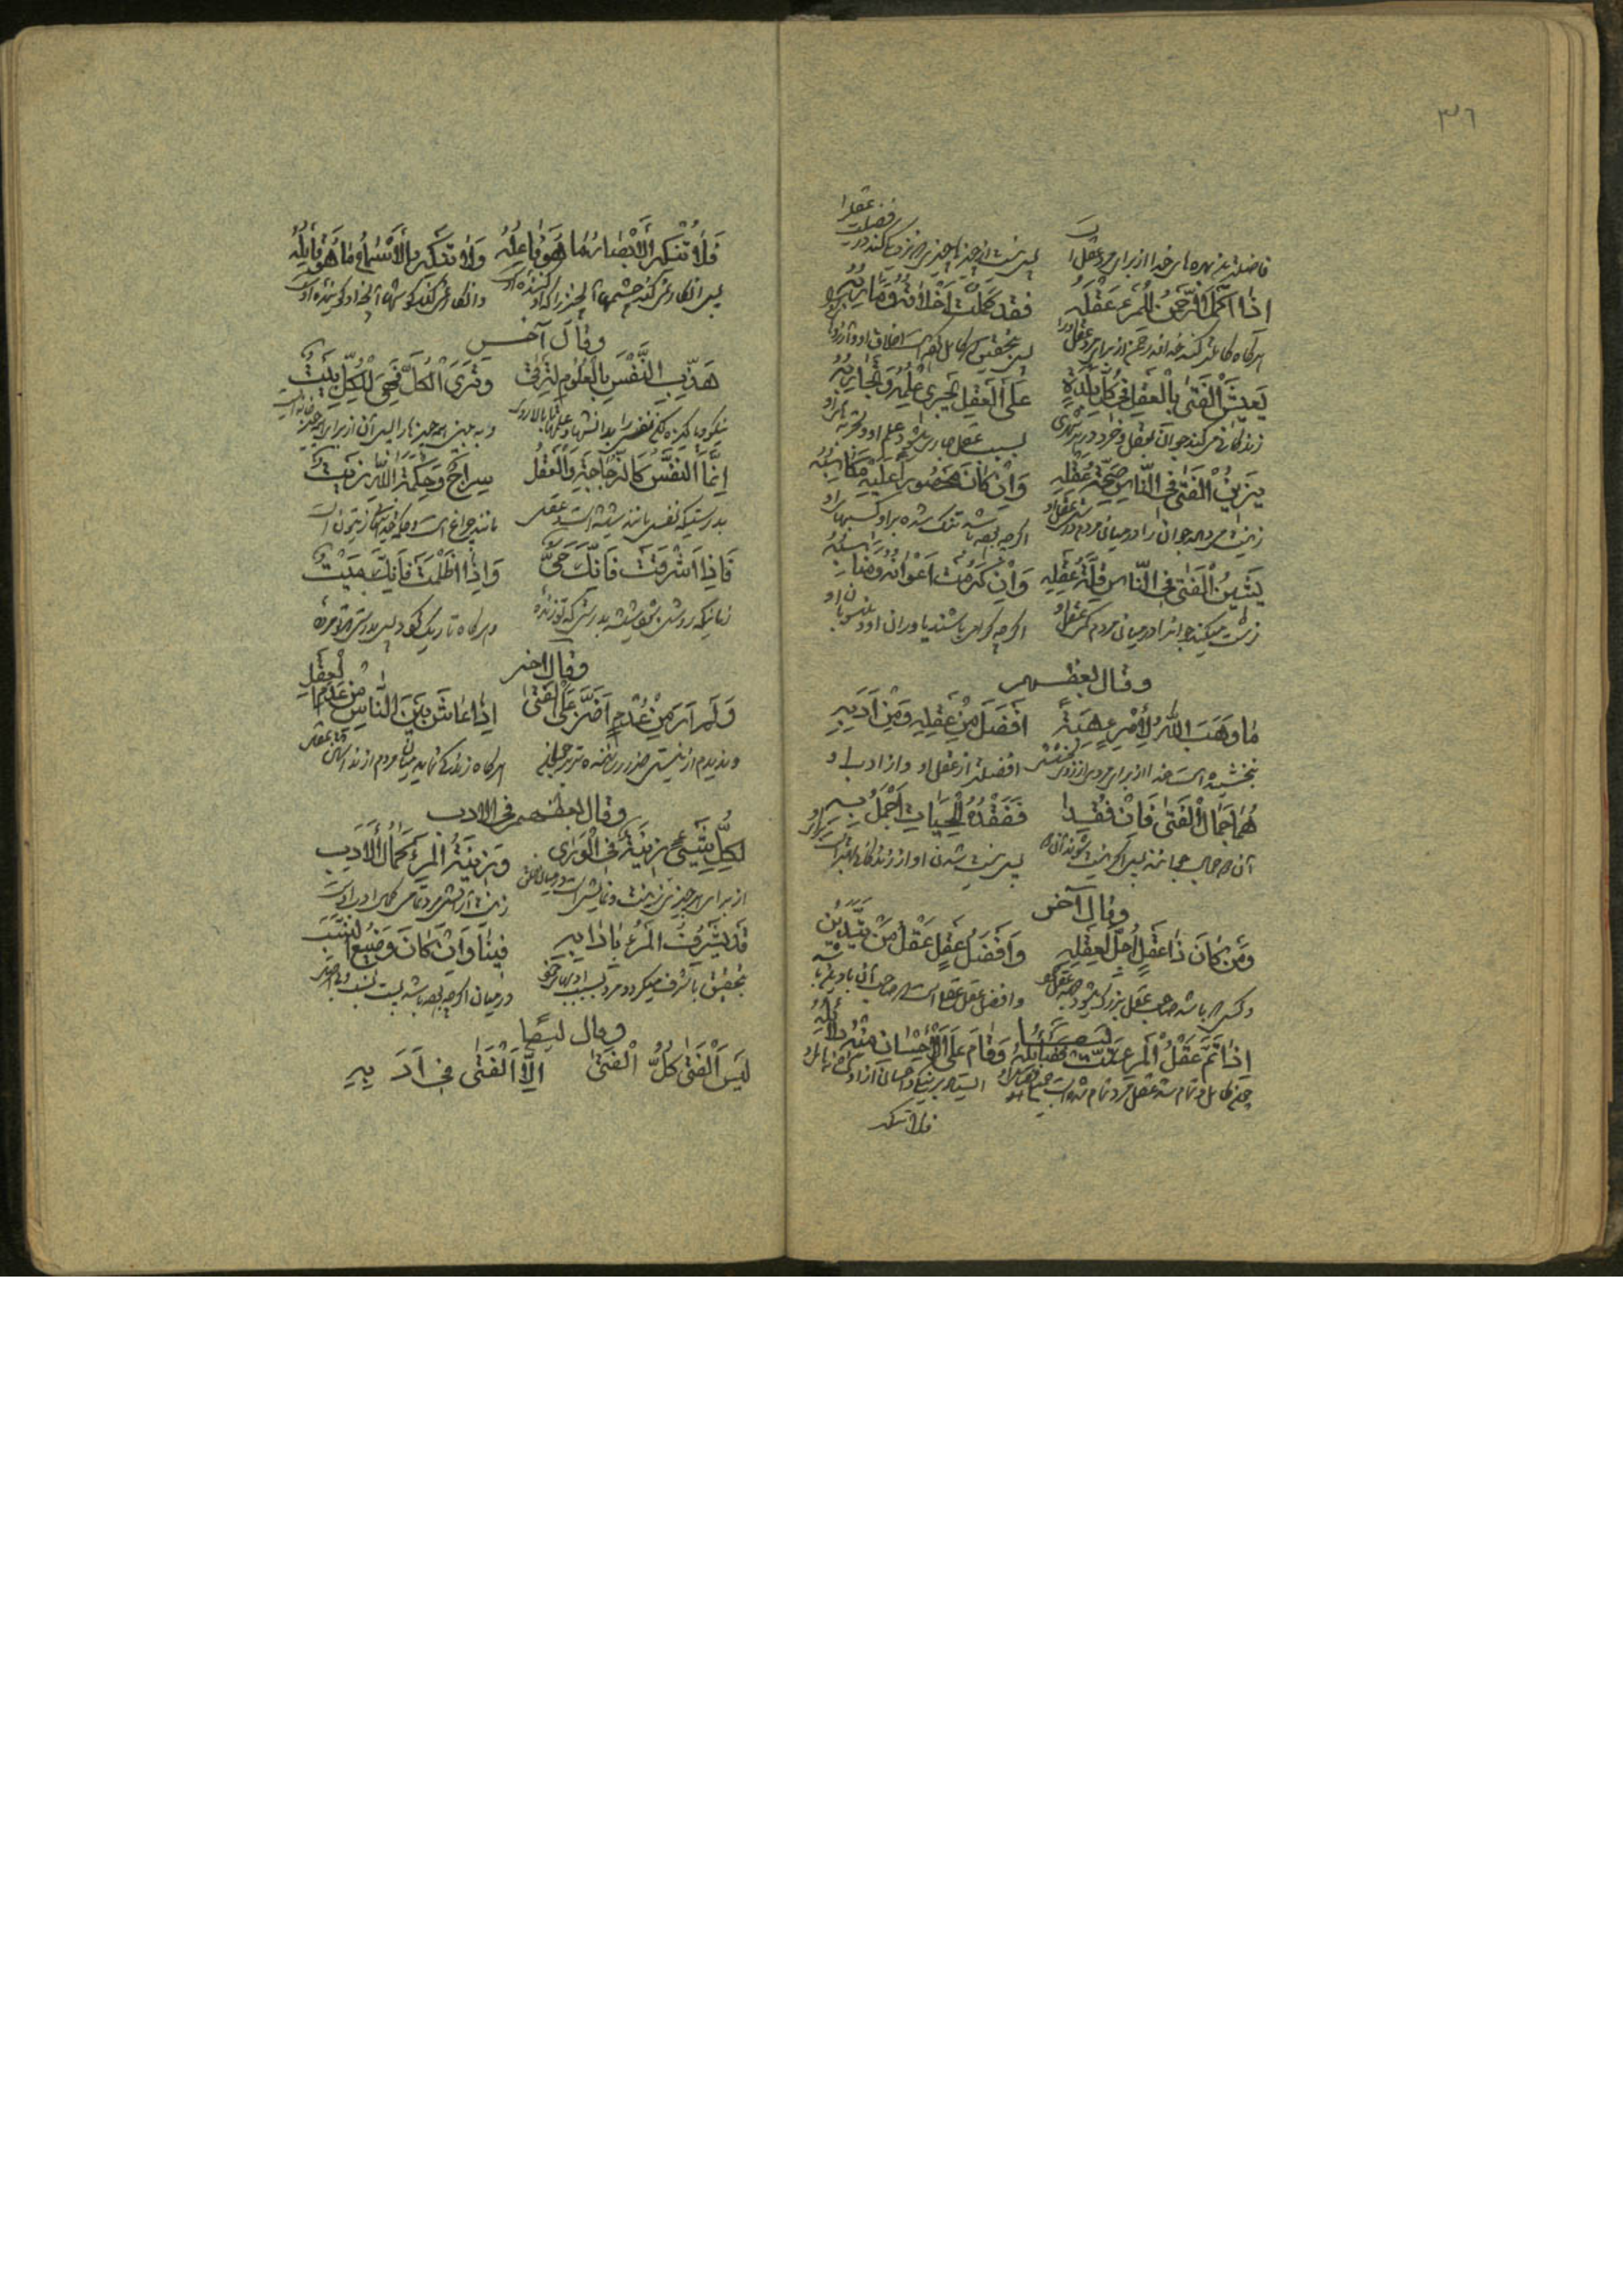 ٣٦
فاضلترین بهره های خدا از برای مرد عقل
پس نیست از چیزها چیزی که نزدیکی کند در فضیلت عقل را
اِذٰا اَکْمَلَ الرَّحْمٰنُ لِلْمَرْءِ عَقْلَهُ فَقَدْ کَمُلَتْ اَخْلاقُهُ وَمَارِبُهُ
هرگاه کامل کند خدای رحمن از برای مرد عقل او را پس بتحقیق که کامل شده است اخلاق او و آرزوهای او
یَعیشُ الْفَتیٰ بِالْعَقْلِ فی کُلِّ بَلْدَةٍ عَلَی الْعَقْلِ یَجْری عِلْمُهُ وَتَجٰارِبُهُ
زندگانی میکند جوان بعقل و خرد در هر شهری بسبب عقل جاری میشود علم او و تجربه های او
یَزینُ الْفَتیٰ فِی النّٰاسِ صِحَّةُ عَقْلِهِ وَاِنْ کٰانَ مَحْصُورًا عَلَیْهِ مَکٰاسِبُهُ
زینت میدهد جوان را در میان مردم درستی عقل او اگر چه بوده باشد تنگ شده بر او کسبهای او
یَشینُ الْفَتیٰ فِی النّٰاسِ قِلَّةُ عَقْلِهِ وَاِنْ کَرُمَتْ اَعْرٰاقُهُ وَمَنٰاسِبُهُ
زشت میکند جوانرا در میان مردم کمی عقل او اگر چه گرامی باشند یاوران او و نسبهای او
وقال بعضهم
مٰا وَهَبَ اللّٰهُ لِاِمْرِءٍ هِبَةً اَفْضَلَ مِنْ عَقْلِهِ وَمِنْ اَدَبِهِ
نبخشیده است خدا از برای مردی از روی بخشش افضلتر از عقل او و از ادب او
هُمٰا جَمٰالُ الْفَتیٰ فَاِنْ فُقِدٰا فَفَقْدُهُ لِلْحَیٰاتِ اَجْمَلُ بِهِ
آن دو جمال جوانند پس اگر نیست شوند آن دو پس نیست شدن او از زندگانی بهتر است برای او
وقال آخر
وَمَنْ کٰانَ ذٰا عَقْلٍ اُجِلَّ لِعَقْلِهِ وَاَفْضَلُ عَقْلٍ عَقْلُ مَنْ یَتَدَیَّنُ
و کسی که باشد صاحب عقل بزرگ میشود بجهة عقل او و افضل عقل عقلی است که صاحب آن با دین باشد
اِذٰا تَمَّ عَقْلُ الْمَرْءِ تَمَّتْ فَضٰائِلُهُ وَقٰامَ عَلَی الْاِحْسٰانِ مِنْهُ دَلٰائِلُهُ
چون کامل و تمام شد عقل مرد تمام شده است
فلا تنکر
فَلاٰ تُنْکِرُ الْاَبْصٰارُ مٰا هُوَ فٰاعِلُهُ وَلاٰ تُنْکِرُ الْاَسْمٰاعُ مٰا هُوَ قٰایِلُهُ
پس انکار نمی کند چشمها آنچیز را که او کننده اوست و انکار نمی کند گوشها آنچه او گوینده اوست
وقال آخر
هَذِّبِ النَّفْسَ بِالْعُلُومِ لِتَرْقیٰ وَتَرَی الْکُلَّ فَهِیَ لِلْکُلِّ بَیْتُ
نیکو و پاکیزه کن نفس را بدانشها و علمها تا بالا روی و به بینی همه چیزها را پس آن از برای همه چیز خانه است
اِنَّمَا النَّفْسُ کَالزُّجٰاجَةِ وَالْعَقْلُ سِرٰاجٌ وَحِکْمَةُ اللّٰهِ زَیْتُ
بدرستیکه نفس مانند شیشه است و عقل مانند چراغ است و حکمة خدایتعالی زیتون است
فَاِذٰا اَشْرَقَتْ فَاِنَّکَ حَیٌّ وَاِذٰا اَظْلَمَتْ فَاِنَّکَ مَیْتُ
زمانیکه روشن شود شیشه بدرستی که تو زنده و هرگاه تاریک شود پس بدرستی که تو مرده
وقال اخر
وَلَمْ اَرَ مِنْ عُدْمٍ اَضَرَّ عَلَی الْفَتیٰ اِذٰا عٰاشَ بَیْنَ النّٰاسِ مِنْ عَدَمِ الْعَقْلِ
و ندیدم از نیستی ضرر رساننده تر بر جوان هرگاه زندگی نماید میان مردم از نداشتن عقل
وقال بعضهم فی الادب
لِکُلِّ شَیْءٍ زینَةٌ فِی الْوَریٰ وَزینَةُ الْمَرْءِ کَمٰالُ الْاَدَبِ
از برای هر چیزی زینت و نمایشی است در میان خلق زینت و آرایش مرد تمامی و کمال ادب است
قَدْ یَشْرُفُ الْمَرْءُ بِاٰدٰابِهِ فینٰا وَاِنْ کٰانَ وَضیعَ النَّسَبِ
بتحقیق با شرف میگردد مرد بسبب ادبهای خود در میان ما اگر چه بوده باشد پست نسب
وقال ایضًا
لَیْسَ الْفَتیٰ کُلُّ الْفَتیٰ اِلَّا الْفَتیٰ فی اَدَبِهِ